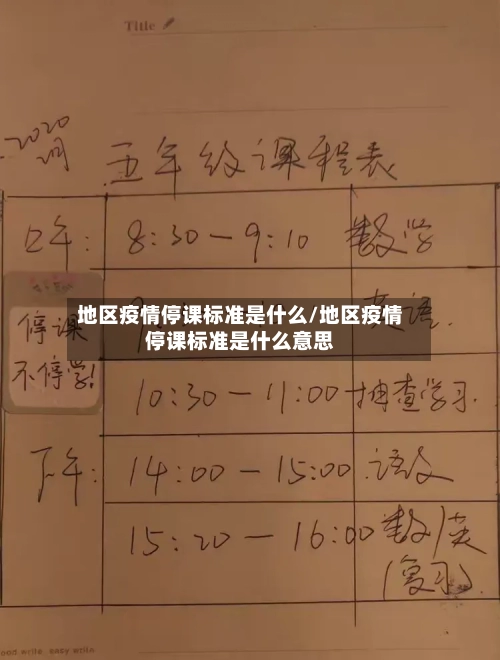 Title
2020
五年级课程表
上午: 8:30—9:10 数学
英语.
停课
不停学!
地区疫情停课标准是什么/地区疫情
停课标准是什么意思
10:30—11:00 抽查学习.
下午: 14:00—15:00 语文
15:20—16:00 数/英
(复习).